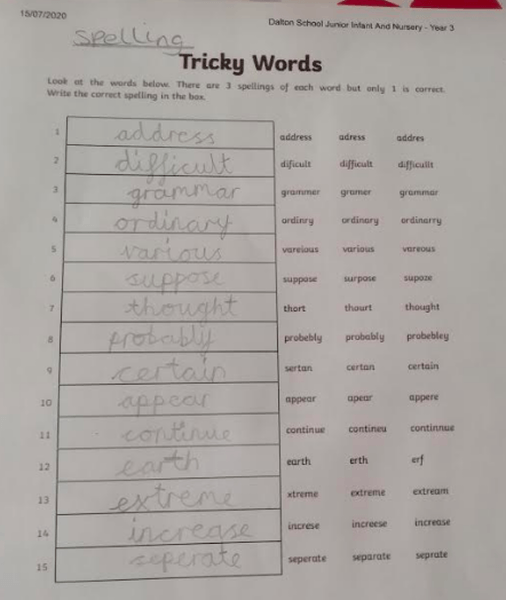 15/07/2020
Dalton School Junior Infant And Nursery - Year 3
spelling
Tricky Words
Look at the words below. There are 3 spellings of each word but only 1 is correct.
Write the correct spelling in the box.
1 address address adress addres
2 difficult dificult difficult difficullt
3 grammar grammer gramer grammar
4 ordinary ordinry ordinary ordinarry
5 various vareious various vareous
6 suppose suppose surpose supoze
7 thought thort thourt thought
8 probably probebly probably probebley
9 certain sertan certan certain
10 appear appear apear appere
11 continue continue contineu continnue
12 earth earth erth erf
13 extreme xtreme extreme extream
14 increase increse increese increase
15 seperate seperate separate seprate